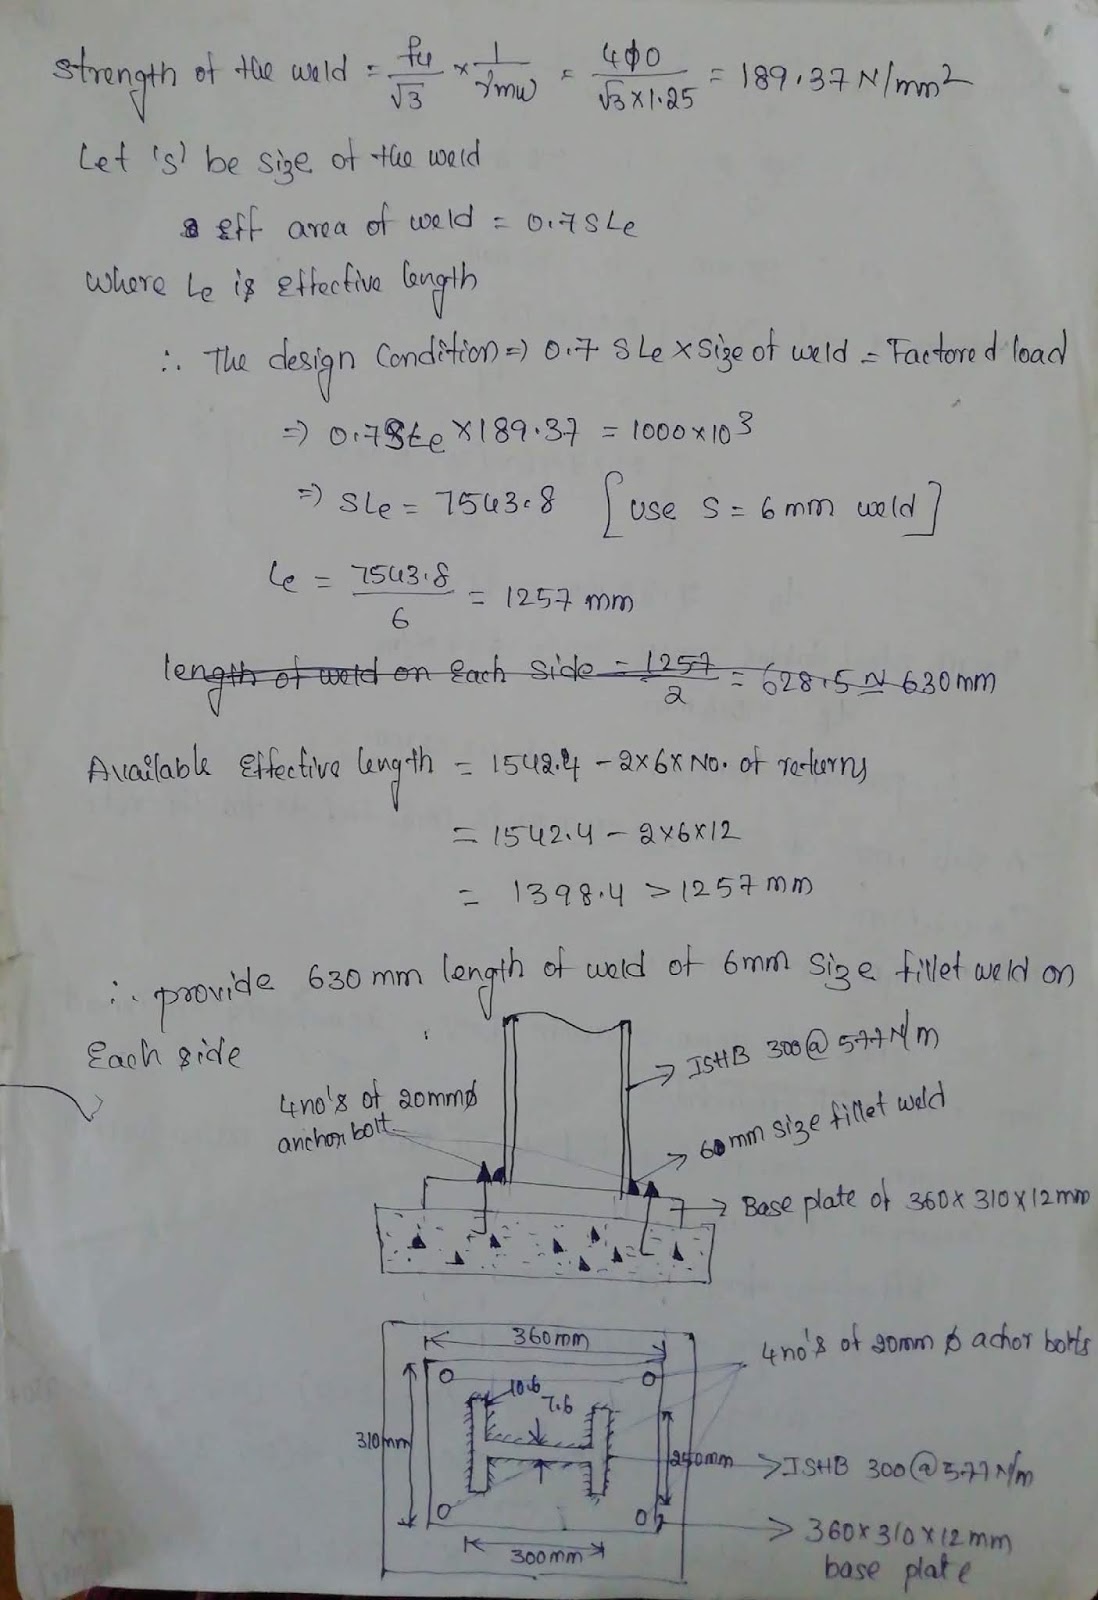 Strength of the weld = fu/√3 × 1/γmw = 410/(√3×1.25) = 189.37 N/mm2
Let 's' be size of the weld
eff area of weld = 0.7SLe
Where Le is Effective length
∴ The design Condition => 0.7 SLe × Size of weld = Factored load
=> 0.7SLe × 189.37 = 1000×10^3
=> SLe = 7543.8 [use S = 6 mm weld]
Le = 7543.8/6 = 1257 mm
length of weld on Each Side = 1257/2 = 628.5 ≈ 630mm
Available Effective length = 1542.4 - 2×6×No. of returns
= 1542.4 - 2×6×12
= 1398.4 > 1257 mm
∴ provide 630 mm length of weld of 6mm Size fillet weld on
Each side
ISHB 300@577N/m
4no's of 20mmø
anchor bolt
6 mm size fillet weld
Base plate of 360×310×12mm
360mm
4no's of 20mm ø achor bolts
10.6
7.6
310mm
250mm
ISHB 300@577N/m
300mm
360×310×12mm
base plate